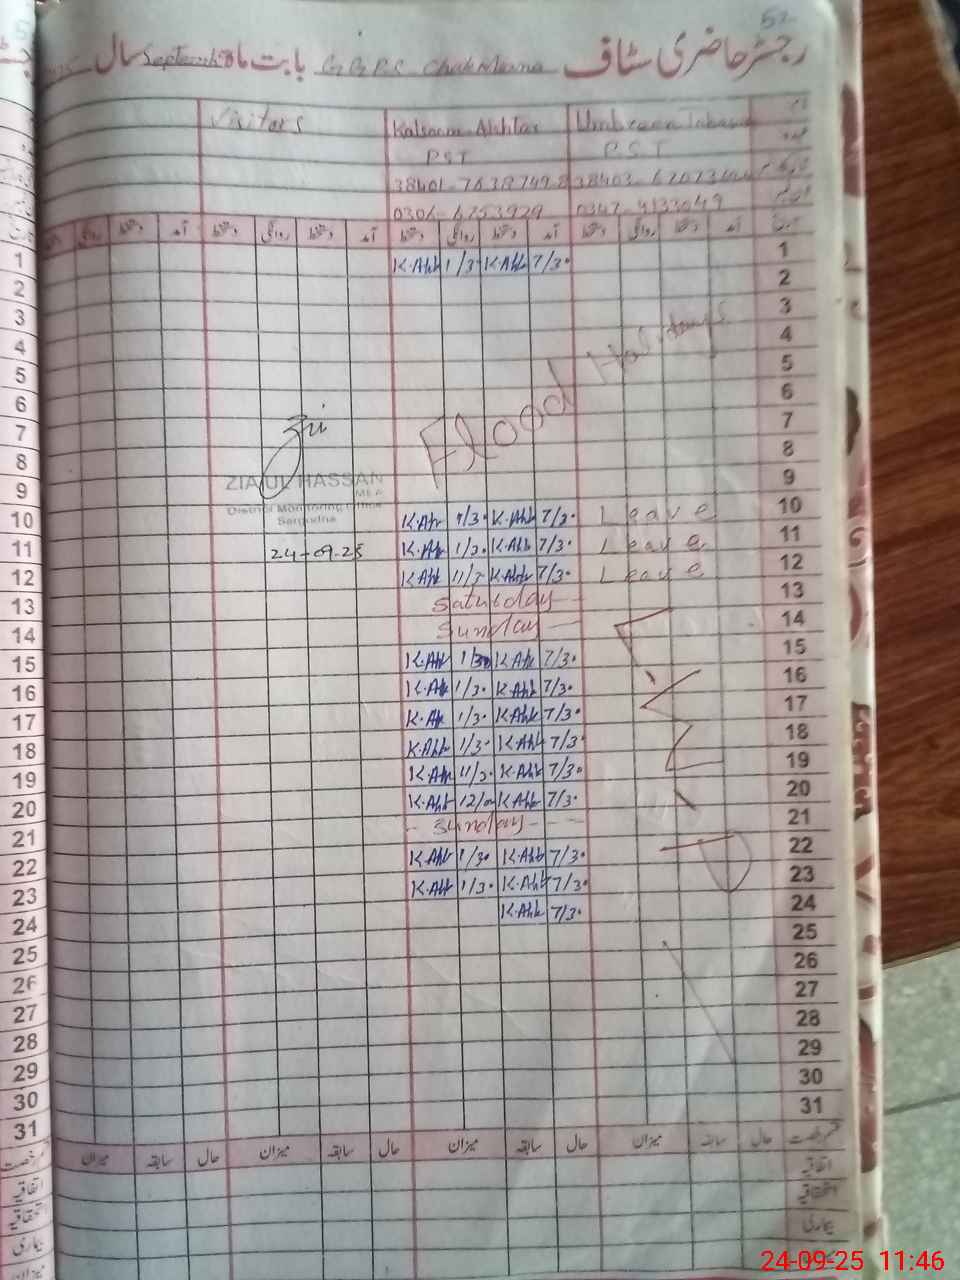 52
رجسٹر حاضری سٹاف G.G.P.S Chak Mana بابت ماہ September سال
Visitors Kalsoom Akhtar Umbreen
P.S.T P.S.T
38401- 38403-
0306-6753929 0347-4133049
آمد دستخط روانگی دستخط آمد دستخط روانگی دستخط آمد دستخط روانگی دستخط آمد دستخط روانگی
1 K.Akh 1/30 K.Akh 7/30 1
2 2
3 3
4 Flood Holidays 4
5 5
6 6
7 7
8 8
9 ZIA UL HASSAN 9
MEA
District Monitoring Office
Sargodha
10 K.Akh 1/30 K.Akh 7/30 Leave 10
11 24-09-25 K.Akh 1/30 K.Akh 7/30 Leave 11
12 K.Akh 11/30 K.Akh 7/30 Leave 12
13 Saturday 13
14 Sunday 14
15 K.Akh 1/30 K.Akh 7/30 15
16 K.Akh 1/30 K.Akh 7/30 16
17 K.Akh 1/30 K.Akh 7/30 17
18 K.Akh 1/30 K.Akh 7/30 18
19 K.Akh 11/30 K.Akh 7/30 19
20 K.Akh 12/00 K.Akh 7/30 20
21 Sunday 21
22 K.Akh 1/30 K.Akh 7/30 22
23 K.Akh 1/30 K.Akh 7/30 23
24 K.Akh 7/30 24
25 25
26 26
27 27
28 28
29 29
30 30
31 31
قسم رخصت حال سابقہ میزان حال سابقہ میزان حال سابقہ میزان حال سابقہ میزان
اتفاقیہ اتفاقیہ
استحقاقیہ استحقاقیہ
بیماری بیماری
میزان
24-09-25 11:46